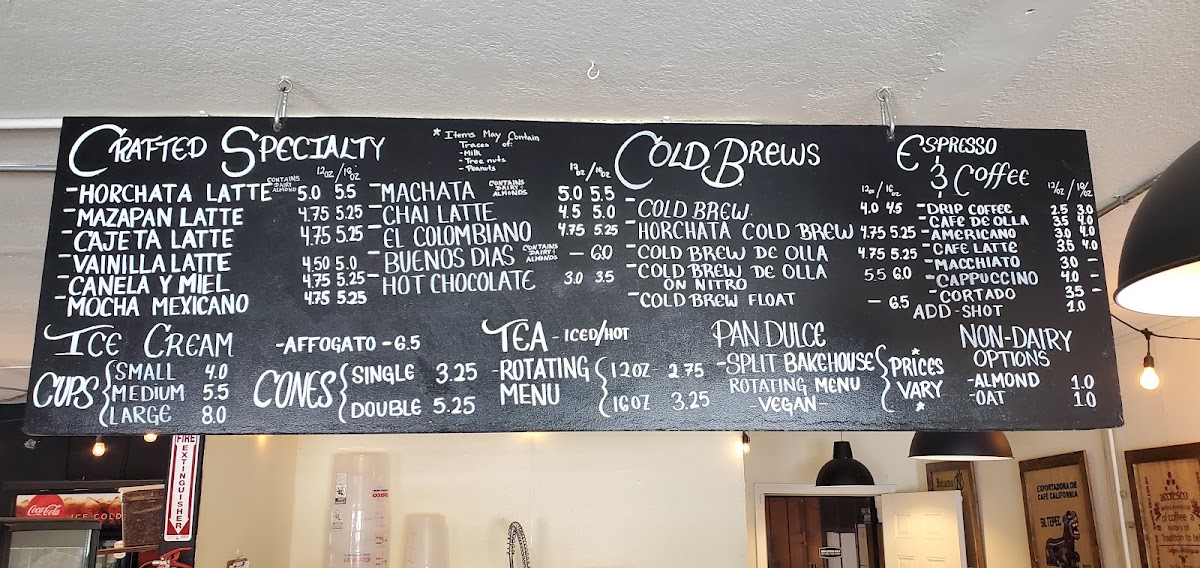 CRAFTED SPECIALTY
12oz/16oz
-HORCHATA LATTE CONTAINS DAIRY ALMOND 5.0 5.5
-MAZAPAN LATTE 4.75 5.25
-CAJETA LATTE 4.75 5.25
-VAINILLA LATTE 4.50 5.0
-CANELA Y MIEL 4.75 5.25
-MOCHA MEXICANO 4.75 5.25
* Items May Contain
Traces of:
-Milk
-Tree nuts
-Peanuts
12oz/16oz
-MACHATA CONTAINS DAIRY + ALMONDS 5.0 5.5
-CHAI LATTE 4.5 5.0
-EL COLOMBIANO 4.75 5.25
-BUENOS DIAS CONTAINS DAIRY + ALMONDS - 6.0
-HOT CHOCOLATE 3.0 3.5
COLD BREWS
12oz/16oz
-COLD BREW 4.0 4.5
-HORCHATA COLD BREW 4.75 5.25
-COLD BREW DE OLLA 4.75 5.25
-COLD BREW DE OLLA
ON NITRO 5.5 6.0
-COLD BREW FLOAT - 6.5
ESPRESSO
& COFFEE
12/16oz
-DRIP COFFEE 2.5 3.0
-CAFE DE OLLA 3.5 4.0
-AMERICANO 3.0 4.0
-CAFE LATTE 3.5 4.0
-MACCHIATO 3.0 -
-CAPPUCCINO 4.0 -
-CORTADO 3.5 -
ADD-SHOT 1.0
ICE CREAM
-AFFOGATO - 6.5
CUPS
SMALL 4.0
MEDIUM 5.5
LARGE 8.0
CONES
SINGLE 3.25
DOUBLE 5.25
TEA - ICED/HOT
-ROTATING
MENU
12OZ 2.75
16OZ 3.25
PAN DULCE
-SPLIT BAKEHOUSE
ROTATING MENU
-VEGAN-
*
PRICES
VARY
*
NON-DAIRY
OPTIONS
-ALMOND 1.0
-OAT 1.0
FIRE
EXTINGUISHER
Coca-Cola
ICE COLD
EXPORTADORA DE
CAFÉ CALIFORNIA
SILTEPEC